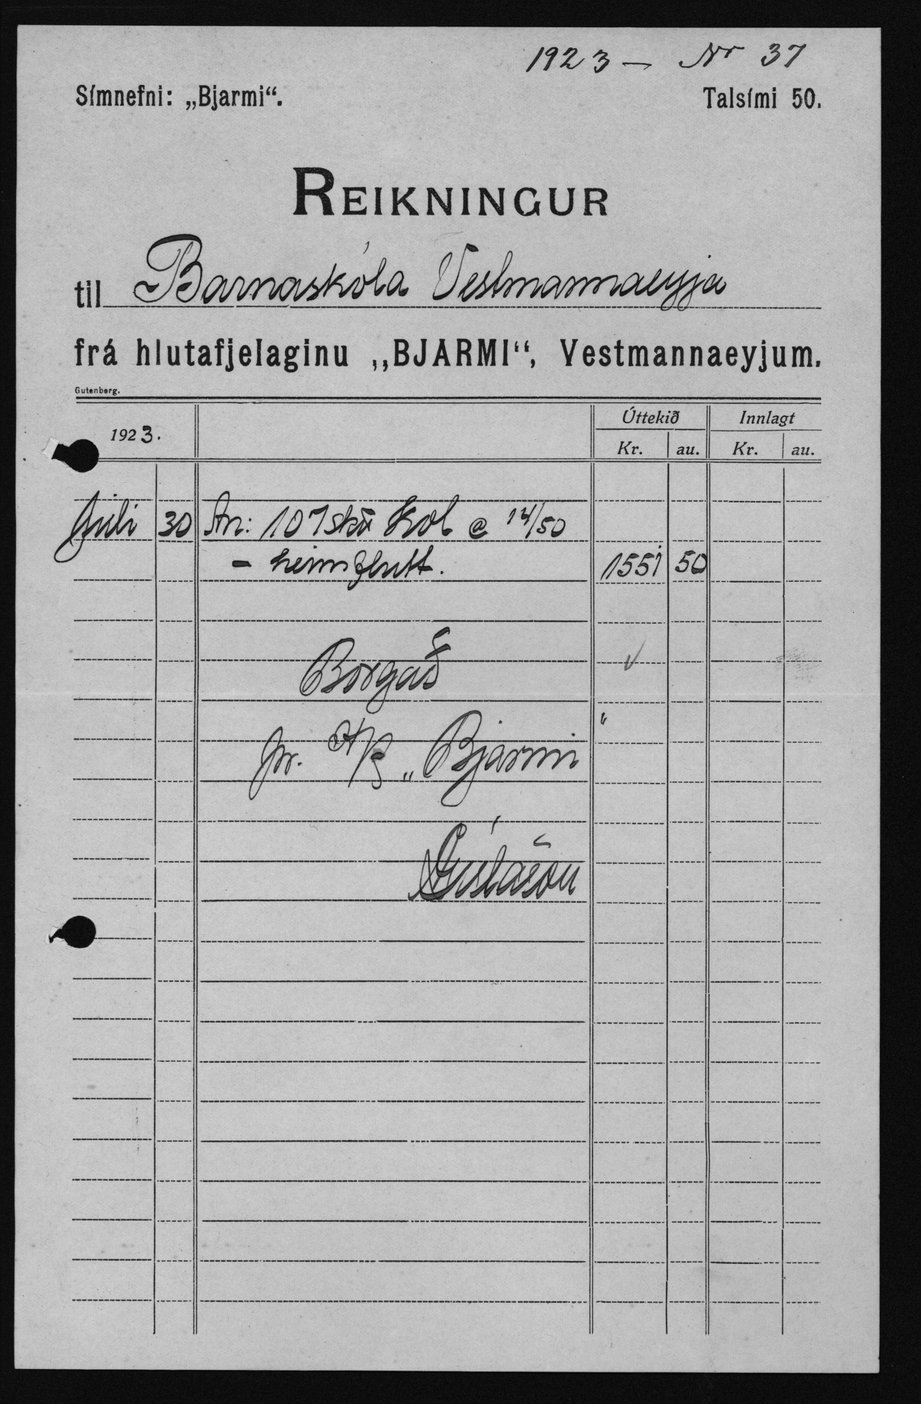 1923 — Nr 37
Símnefni: „Bjarmi“. Talsími 50.
REIKNINGUR
til Barnaskóla Vestmannaeyja
frá hlutafjelaginu „BJARMI“, Vestmannaeyjum.
Gutenberg.
1923. Úttekið Innlagt
Kr. au. Kr. au.
Júli 30 An: 107 skd Kol @ 14/50
- heimflutt. 1551 50
Borgað
pr. H/F „Bjarmi
Gíslason